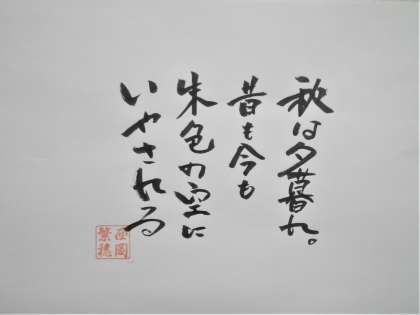 秋は夕暮れ。
昔も今も
朱色の空に
いやされる